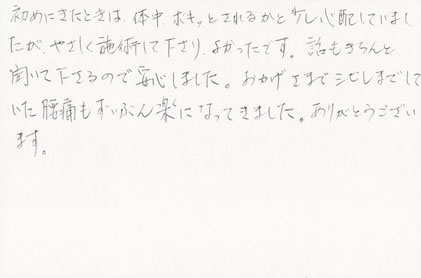 初めにきたときは、体中、ボキッとされるかと少し心配していまし
たが、やさしく施術して下さり、よかったです。話もきちんと
聞いて下さるので安心しました。おかげさまでシビレまでして
いた腰痛もずいぶん楽になってきました。ありがとうござい
ます。